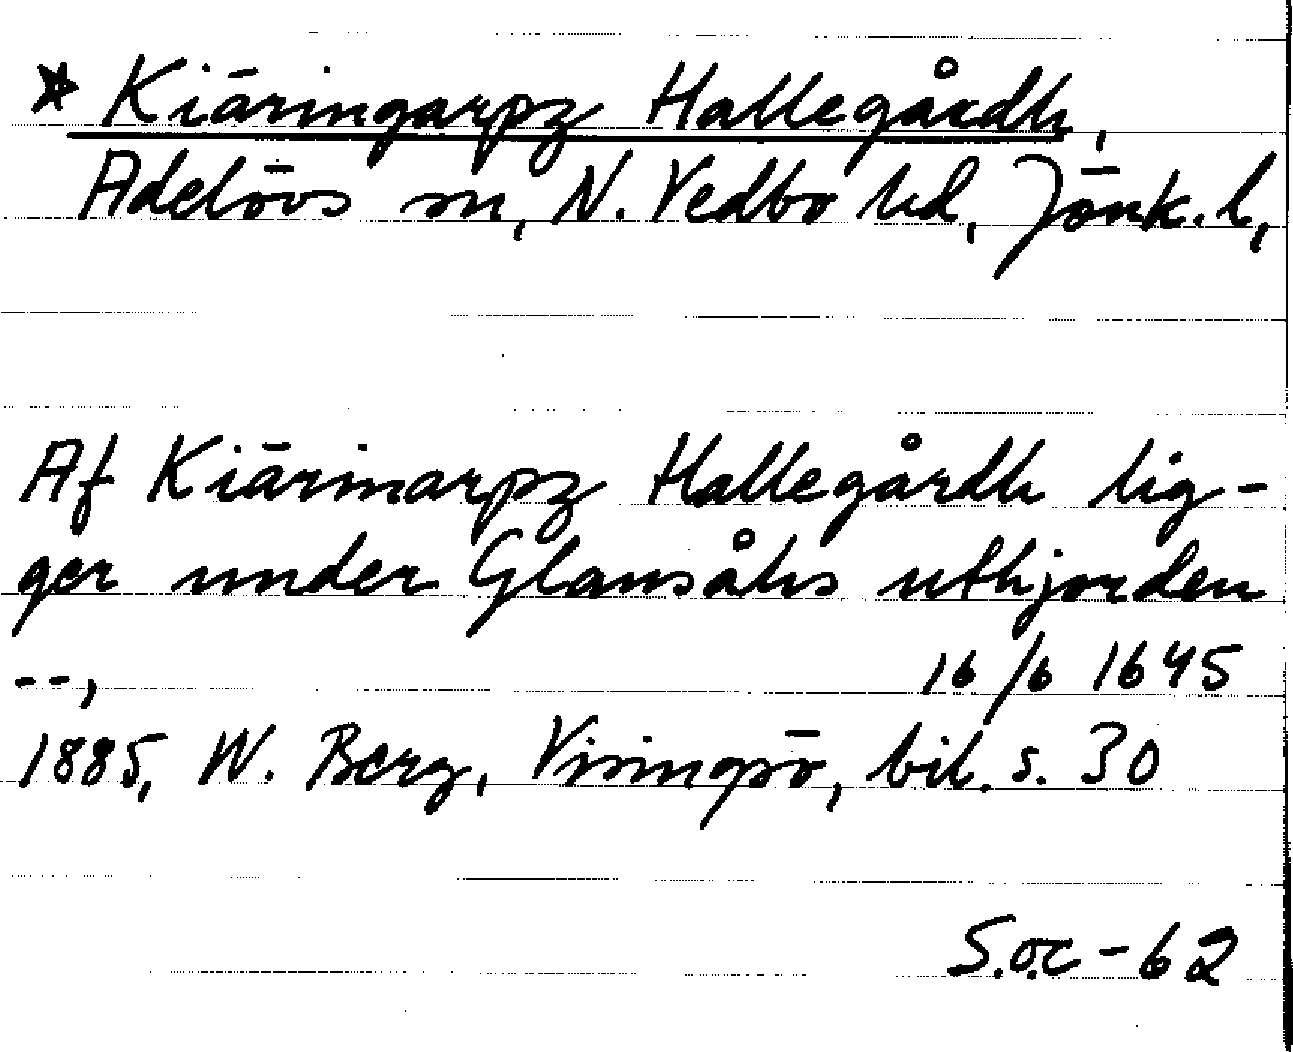 * Kiäringarpz Hallegårdh,
Adelövs sn, N. Vedbo hd, Jönk. l,
Af Kiärinarpz Hallegårdh lig-
ger under Glansåhs uthjorden
--, 16/6 1645
1885, W. Berg, Visingsö, bil. s. 30
S.o.c - 62